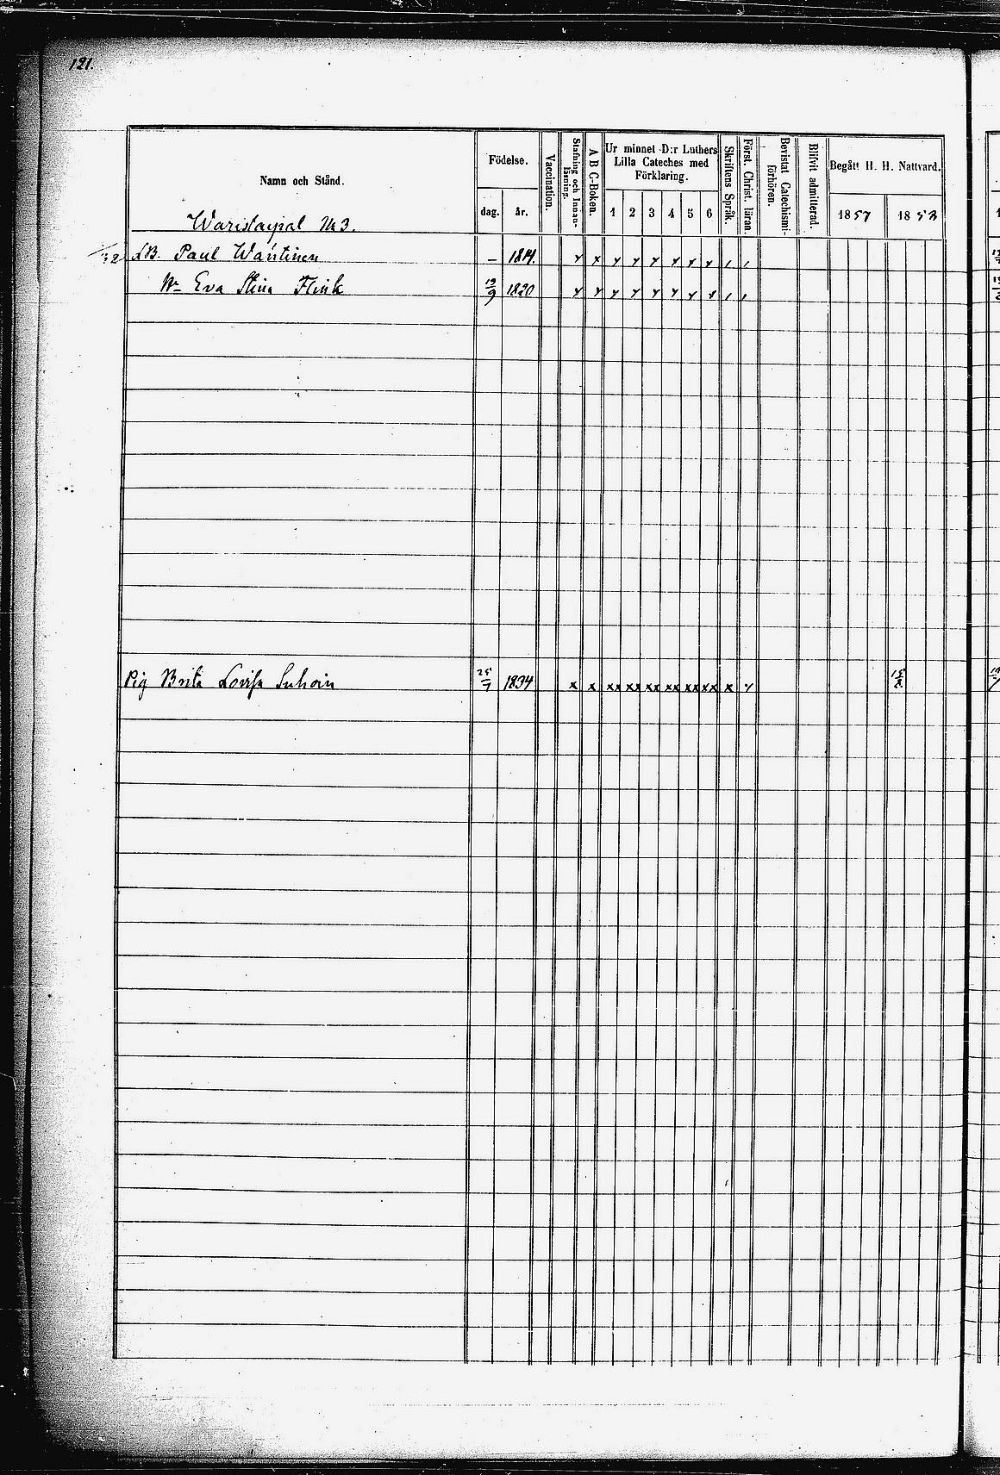 121.
Namn och Stånd.
Födelse.
dag. år.
Vaccination.
Stafning och Innanläsning.
A B C-Boken.
Ur minnet D:r Luthers
Lilla Cateches med
Förklaring.
1 2 3 4 5 6
Skriftens Språk.
Först. Christ. läran.
Bevistat Catechismi-
förhören.
Blifvit admitterad.
Begått H. H. Nattvard.
1857 1858
No 3.
Paul Wäntinen – 1814. x x x x x x x x , ,
Eva Stina Flink 19/9 1820 x x x x x x x x , ,
Pig Brita Lovisa Suhoin 25/7 1834 x x xx xx xx xx xx xx x x